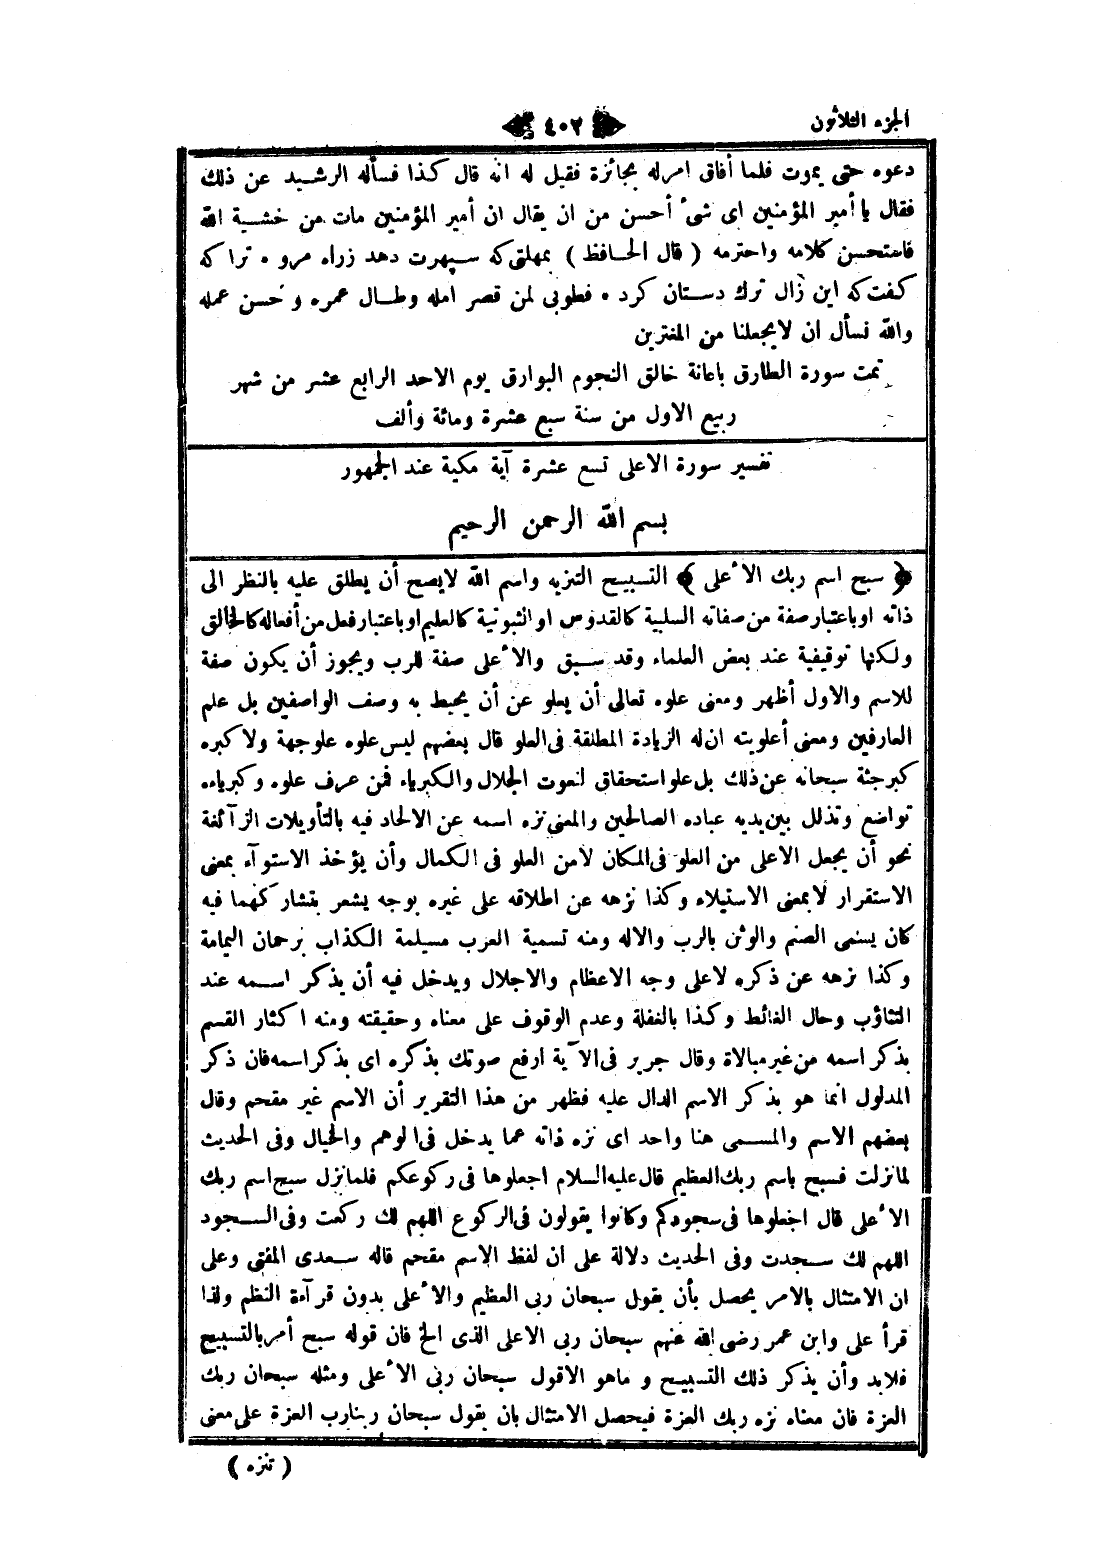 الجزء الثلاثون
٤٠٢
دعوه حتى يموت فلما أفاق امرله بجائزة فقيل له انه قال كذا فسأله الرشيد عن ذلك
فقال يا أمير المؤمنين اى شىء أحسن من ان يقال ان أمير المؤمنين مات من خشية الله
فاستحسن كلامه واحترمه ( قال الحافظ ) بمهلتى كه سپهرت دهد زراه مرو ٠ ترا كه
كفت كه اين زال ترك دستان كرد ٠ فطوبى لمن قصر امله وطال عمره و حسن عمله
والله نسأل ان لايجعلنا من المغترين
تمت سورة الطارق باعانة خالق النجوم البوارق يوم الاحد الرابع عشر من شهر
ربيع الاول من سنة سبع عشرة ومائة وألف
تفسير سورة الاعلى تسع عشرة آية مكية عند الجمهور
بسم الله الرحمن الرحيم
﴿ سبح اسم ربك الأعلى ﴾ التسبيح التنزيه واسم الله لايصح أن يطلق عليه بالنظر الى
ذاته اوباعتبار صفة من صفاته السلبية كالقدوس او الثبوتية كالعليم اوباعتبار فعل من أفعاله كالخالق
ولكنها توقيفية عند بعض العلماء وقد سبق والأعلى صفة للرب ويجوز أن يكون صفة
للاسم والاول أظهر ومعنى علوه تعالى أن يعلو عن أن يحيط به وصف الواصفين بل علم
العارفين ومعنى أعلويته ان له الزيادة المطلقة فى العلو قال بعضهم ليس علوه علوجهة ولا كبره
كبرجثة سبحانه عن ذلك بل علو استحقاق لنعوت الجلال والكبرياء فمن عرف علوه وكبرياءه
تواضع وتذلل بين يديه عباده الصالحين والمعنى نزه اسمه عن الالحاد فيه بالتأويلات الزآئغة
نحو أن يجعل الاعلى من العلو فى المكان لامن العلو فى الكمال وأن يؤخذ الاستوآء بمعنى
الاستقرار لابمعنى الاستيلاء وكذا نزهه عن اطلاقه على غيره بوجه يشعر بتشاركهما فيه
كان يسمى الصنم والوثن بالرب والاله ومنه تسمية العرب مسيلمة الكذاب برحمان اليمامة
وكذا نزهه عن ذكره لاعلى وجه الاعظام والاجلال ويدخل فيه أن يذكر اسمه عند
التثاؤب وحال الغائط وكذا بالغفلة وعدم الوقوف على معناه وحقيقته ومنه اكثار القسم
بذكر اسمه من غير مبالاة وقال جرير فى الآية ارفع صوتك بذكره اى بذكر اسمه فان ذكر
المدلول انما هو بذكر الاسم الدال عليه فظهر من هذا التقرير أن الاسم غير مقحم وقال
بعضهم الاسم والمسمى هنا واحد اى نزه ذاته عما يدخل فى الوهم والخيال وفى الحديث
لما نزلت فسبح باسم ربك العظيم قال عليه السلام اجعلوها فى ركوعكم فلما نزل سبح اسم ربك
الأعلى قال اجعلوها فى سجودكم وكانوا يقولون فى الركوع اللهم لك ركعت وفى السجود
اللهم لك سجدت وفى الحديث دلالة على ان لفظ الاسم مقحم قاله سعدى المفتى وعلى
ان الامتثال بالامر يحصل بأن يقول سبحان ربى العظيم والأعلى بدون قرآءة النظم ولذا
قرأ على وابن عمر رضى الله عنهم سبحان ربى الاعلى الذى الخ فان قوله سبح أمر بالتسبيح
فلابد وأن يذكر ذلك التسبيح و ماهو الاقول سبحان ربى الأعلى ومثله سبحان ربك
العزة فان معناه نزه ربك العزة فيحصل الامتثال بان يقول سبحان ربنا رب العزة على معنى
( تنزه )